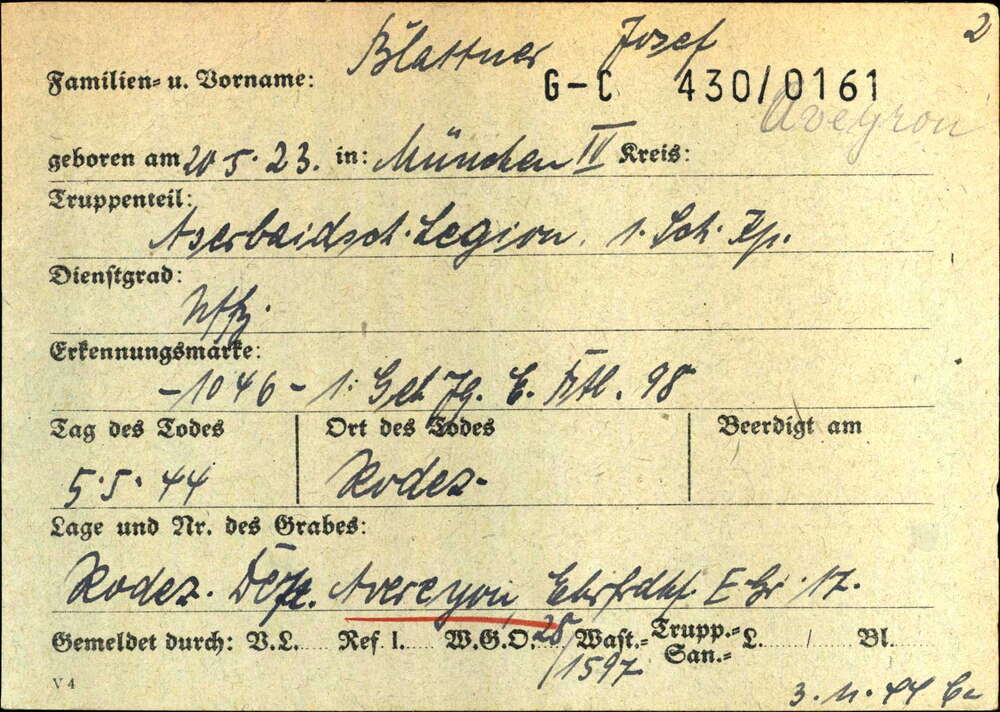 2
Familien- u. Vorname: Blattner Josef
G-C 430/0161
Aveyron
geboren am 20.5.23. in: München IV Kreis:
Truppenteil:
Aserbaidsch. Legion. 1. Sch. Kp.
Dienstgrad:
Uffz.
Erkennungsmarke:
-1046- 1. Geb. Jg. E. Btl. 98
Tag des Todes Ort des Todes Beerdigt am
5.5.44 Rodez-
Lage und Nr. des Grabes:
Rodez. Dep. Avereyon, Ehrfrdhf. E Gr. 17.
Gemeldet durch: V.L. Ref. I. W.G.O. 28/1597 Wast.- Trupp.- San.- L. / Bl.
V 4
3.11.44